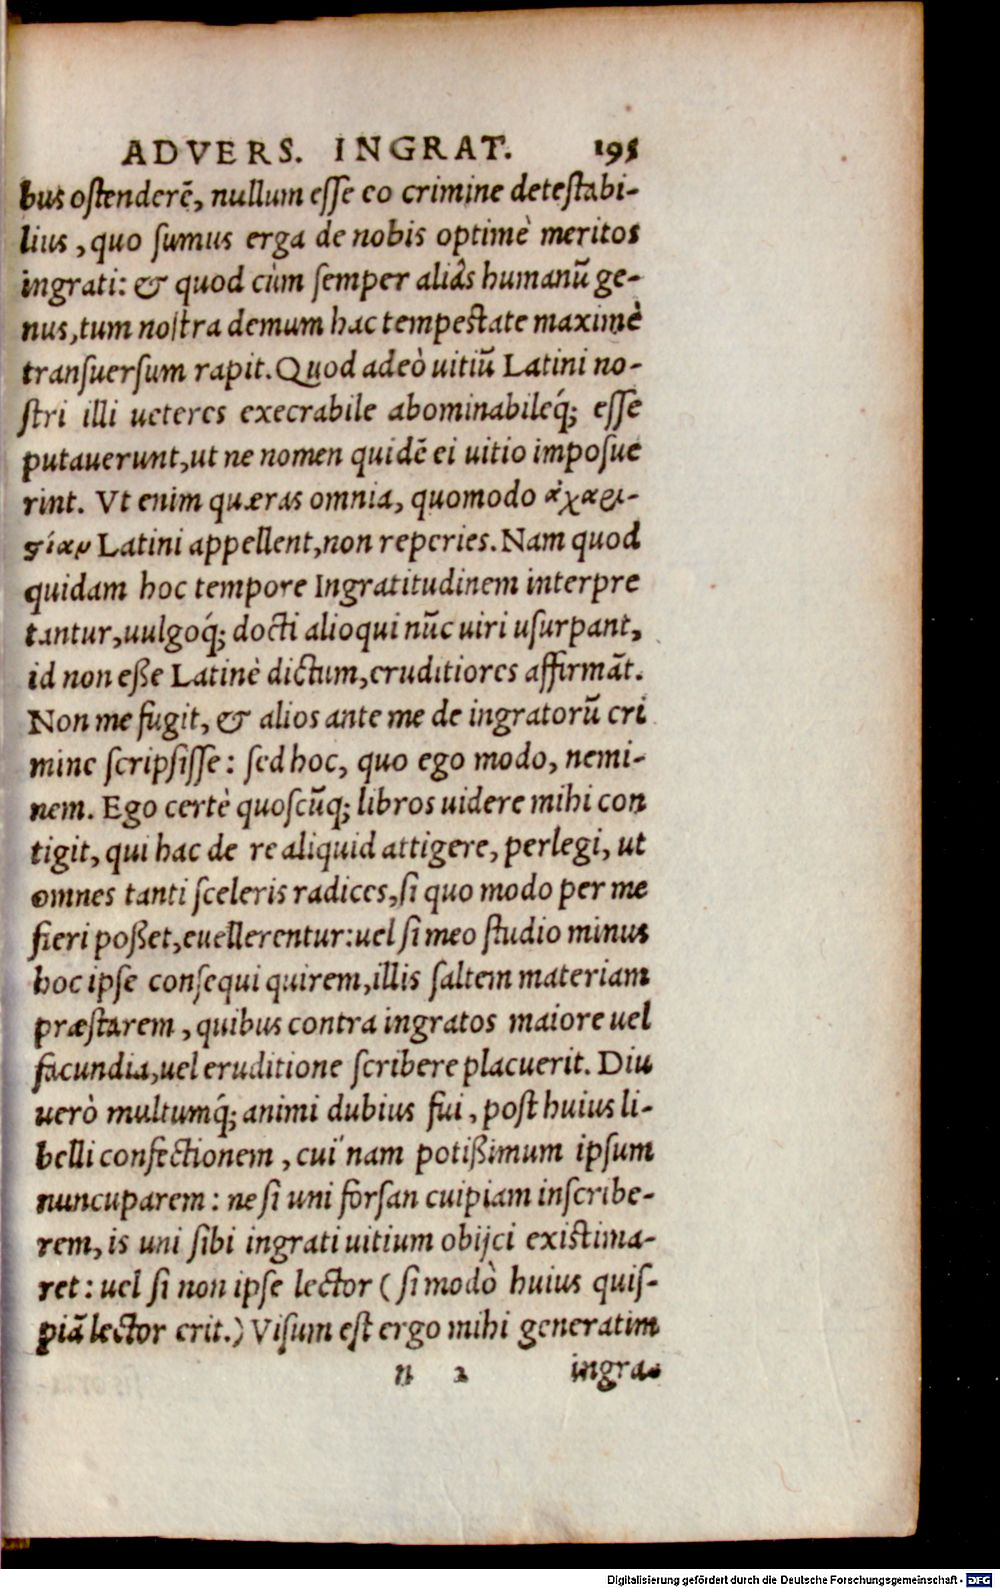 ADVERS. INGRAT. 195
bus oſtenderẽ, nullum eſſe eo crimine deteſtabi-
lius, quo ſumus erga de nobis optimè meritos
ingrati: & quod cùm ſemper aliâs humanũ ge-
nus, tum noſtra demum hac tempeſtate maximè
tranſuerſum rapit. Quod adeò uitiũ Latini no-
ſtri illi ueteres execrabile abominabileq́; eſſe
putauerunt, ut ne nomen quidẽ ei uitio impoſue
rint. Vt enim quæras omnia, quomodo ἀχαρι-
ϛίαν Latini appellent, non reperies. Nam quod
quidam hoc tempore Ingratitudinem interpre
tantur, uulgoq́; docti alioqui nũc uiri uſurpant,
id non eße Latinè dictum, eruditiores affirmãt.
Non me fugit, & alios ante me de ingratorũ cri
mine ſcripſiſſe: ſed hoc, quo ego modo, nemi-
nem. Ego certè quoſcũq; libros uidere mihi con
tigit, qui hac de re aliquid attigere, perlegi, ut
omnes tanti ſceleris radices, ſi quo modo per me
fieri poßet, euellerentur: uel ſi meo ſtudio minus
hoc ipſe conſequi quirem, illis ſaltem materiam
præſtarem, quibus contra ingratos maiore uel
facundia, uel eruditione ſcribere placuerit. Diu
uerò multumq́; animi dubius fui, poſt huius li-
belli confectionem, cui nam potißimum ipſum
nuncuparem: ne ſi uni forſan cuipiam inſcribe-
rem, is uni ſibi ingrati uitium obijci exiſtima-
ret: uel ſi non ipſe lector (ſi modò huius quiſ-
piã lector erit.) Viſum eſt ergo mihi generatim
n 2 ingra-
Digitalisierung gefördert durch die Deutsche Forschungsgemeinschaft - DFG